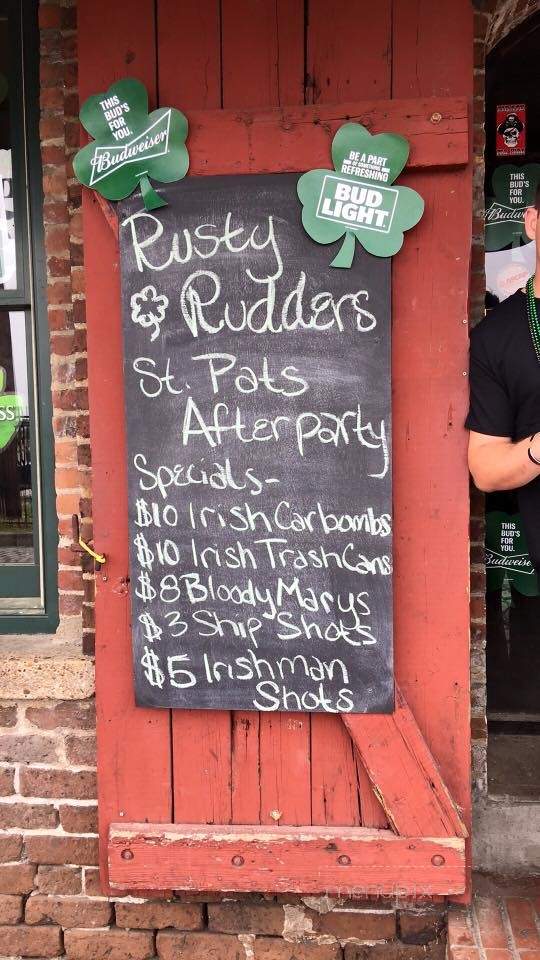 THIS
BUD'S
FOR
YOU.
Budweiser
BE A PART
OF SOMETHING
REFRESHING
BUD
LIGHT
Rusty
Rudders
St. Pats
Afterparty
Specials-
$10 Irish Carbombs
$10 Irish TrashCans
$8 Bloody Marys
$3 Ship Shots
$5 Irishman
Shots
THIS
BUD'S
FOR
YOU.
Budw
THIS
BUD'S
FOR
YOU.
Budweise
SS
menupix